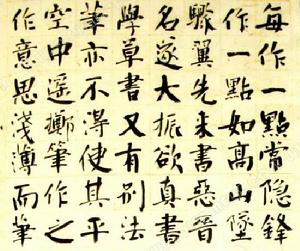 每作一點常隱鋒
作一點如高山墜
驥翼先来書惡晉
名遂大振欲真書
學草書又有别法
華亦不得使其平
空中遥擲筆作之
作意思淺薄而筆